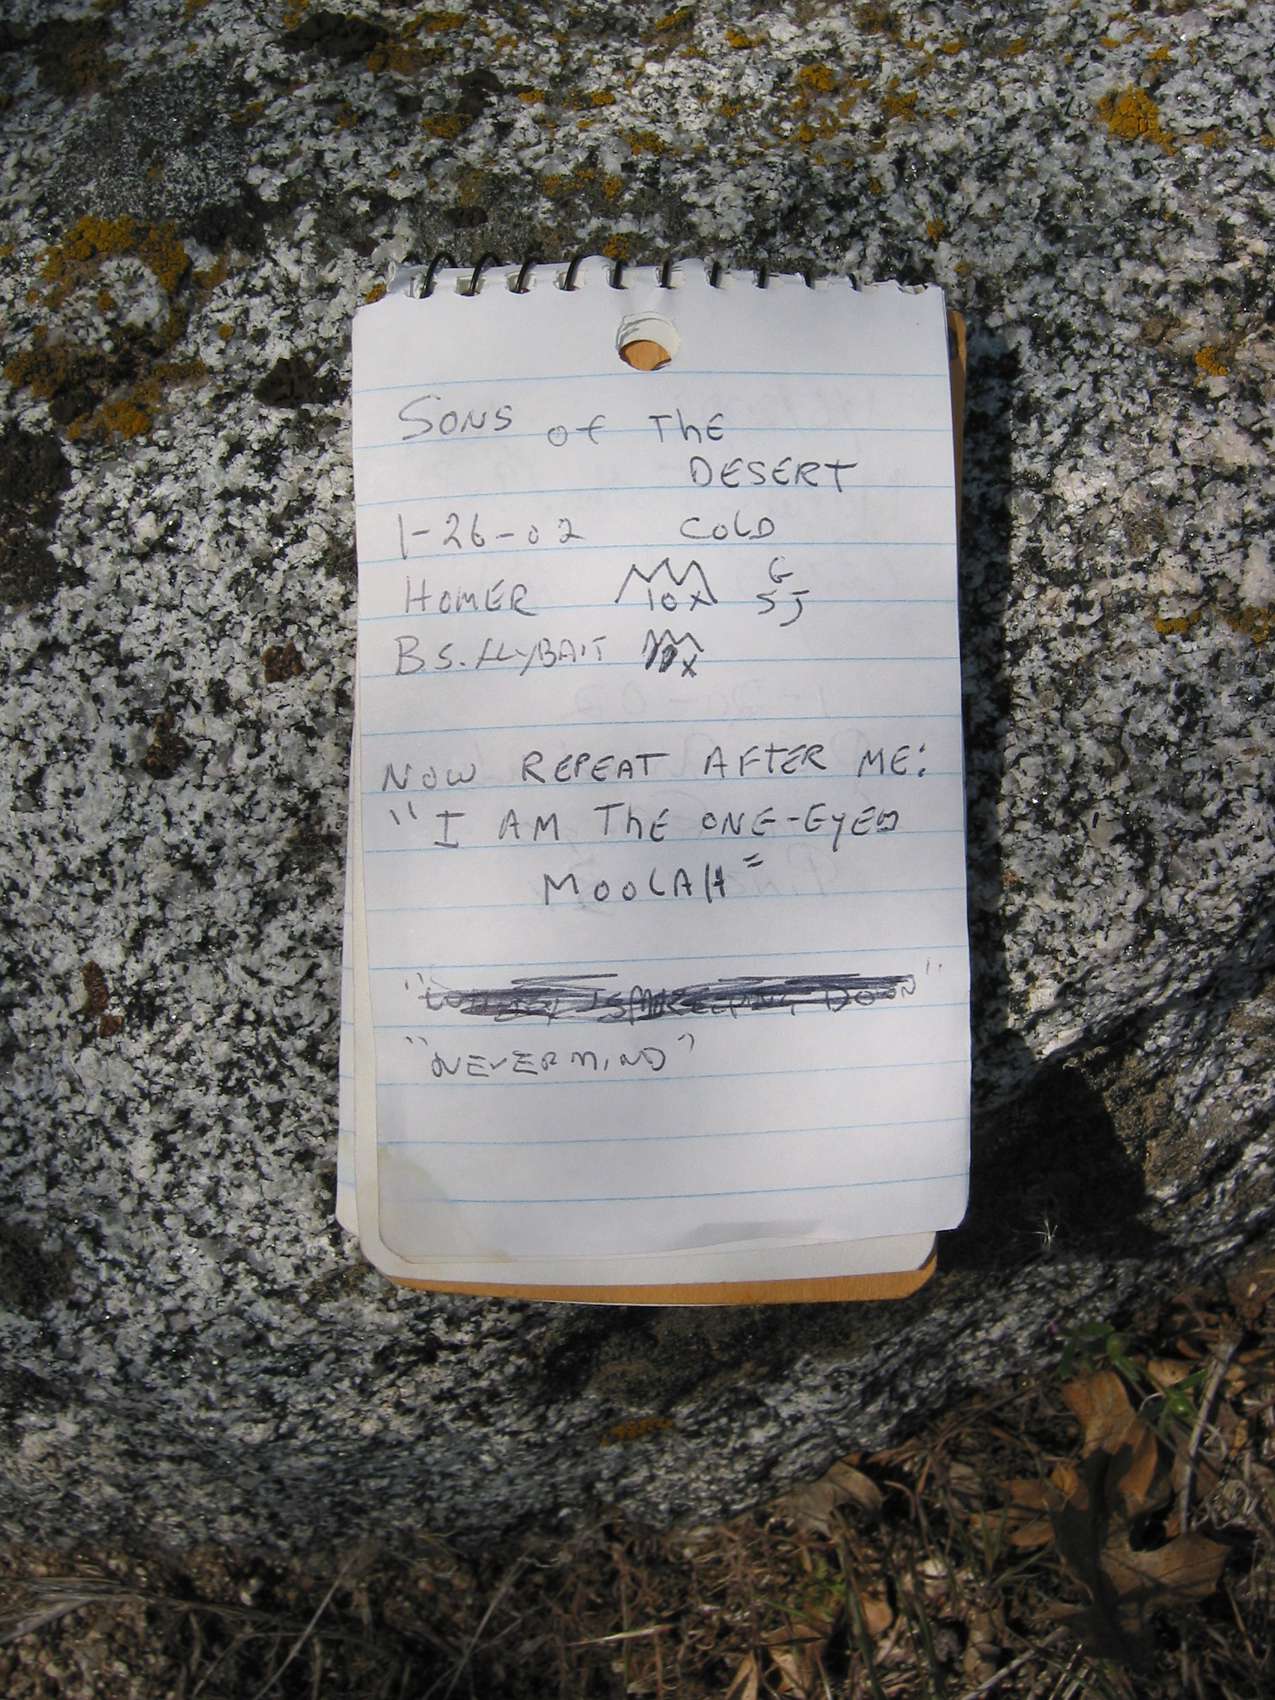 SONS of The
DESERT
1-26-02 COLD
HOMER 10x G
SJ
B.S. FLYBAIT x
NOW REPEAT AFTER ME:
"I AM The ONE-EyED
MOOLAH"
DOWN"
"NEVERMIND"